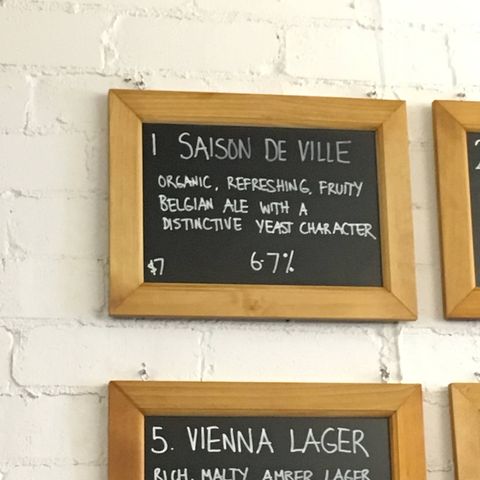 1 SAISON DE VILLE
ORGANIC, REFRESHING, FRUITY
BELGIAN ALE WITH A
DISTINCTIVE YEAST CHARACTER
$7 6.7%
5. VIENNA LAGER
RICH, MALTY AMBER LAGER